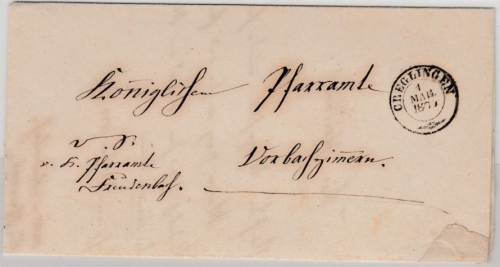 Königlichem Pfarramte
CREGLINGEN
1
MAR.
v. S.
v. K. Pfarramte
Freudenbach.
Vorbachzimmern.